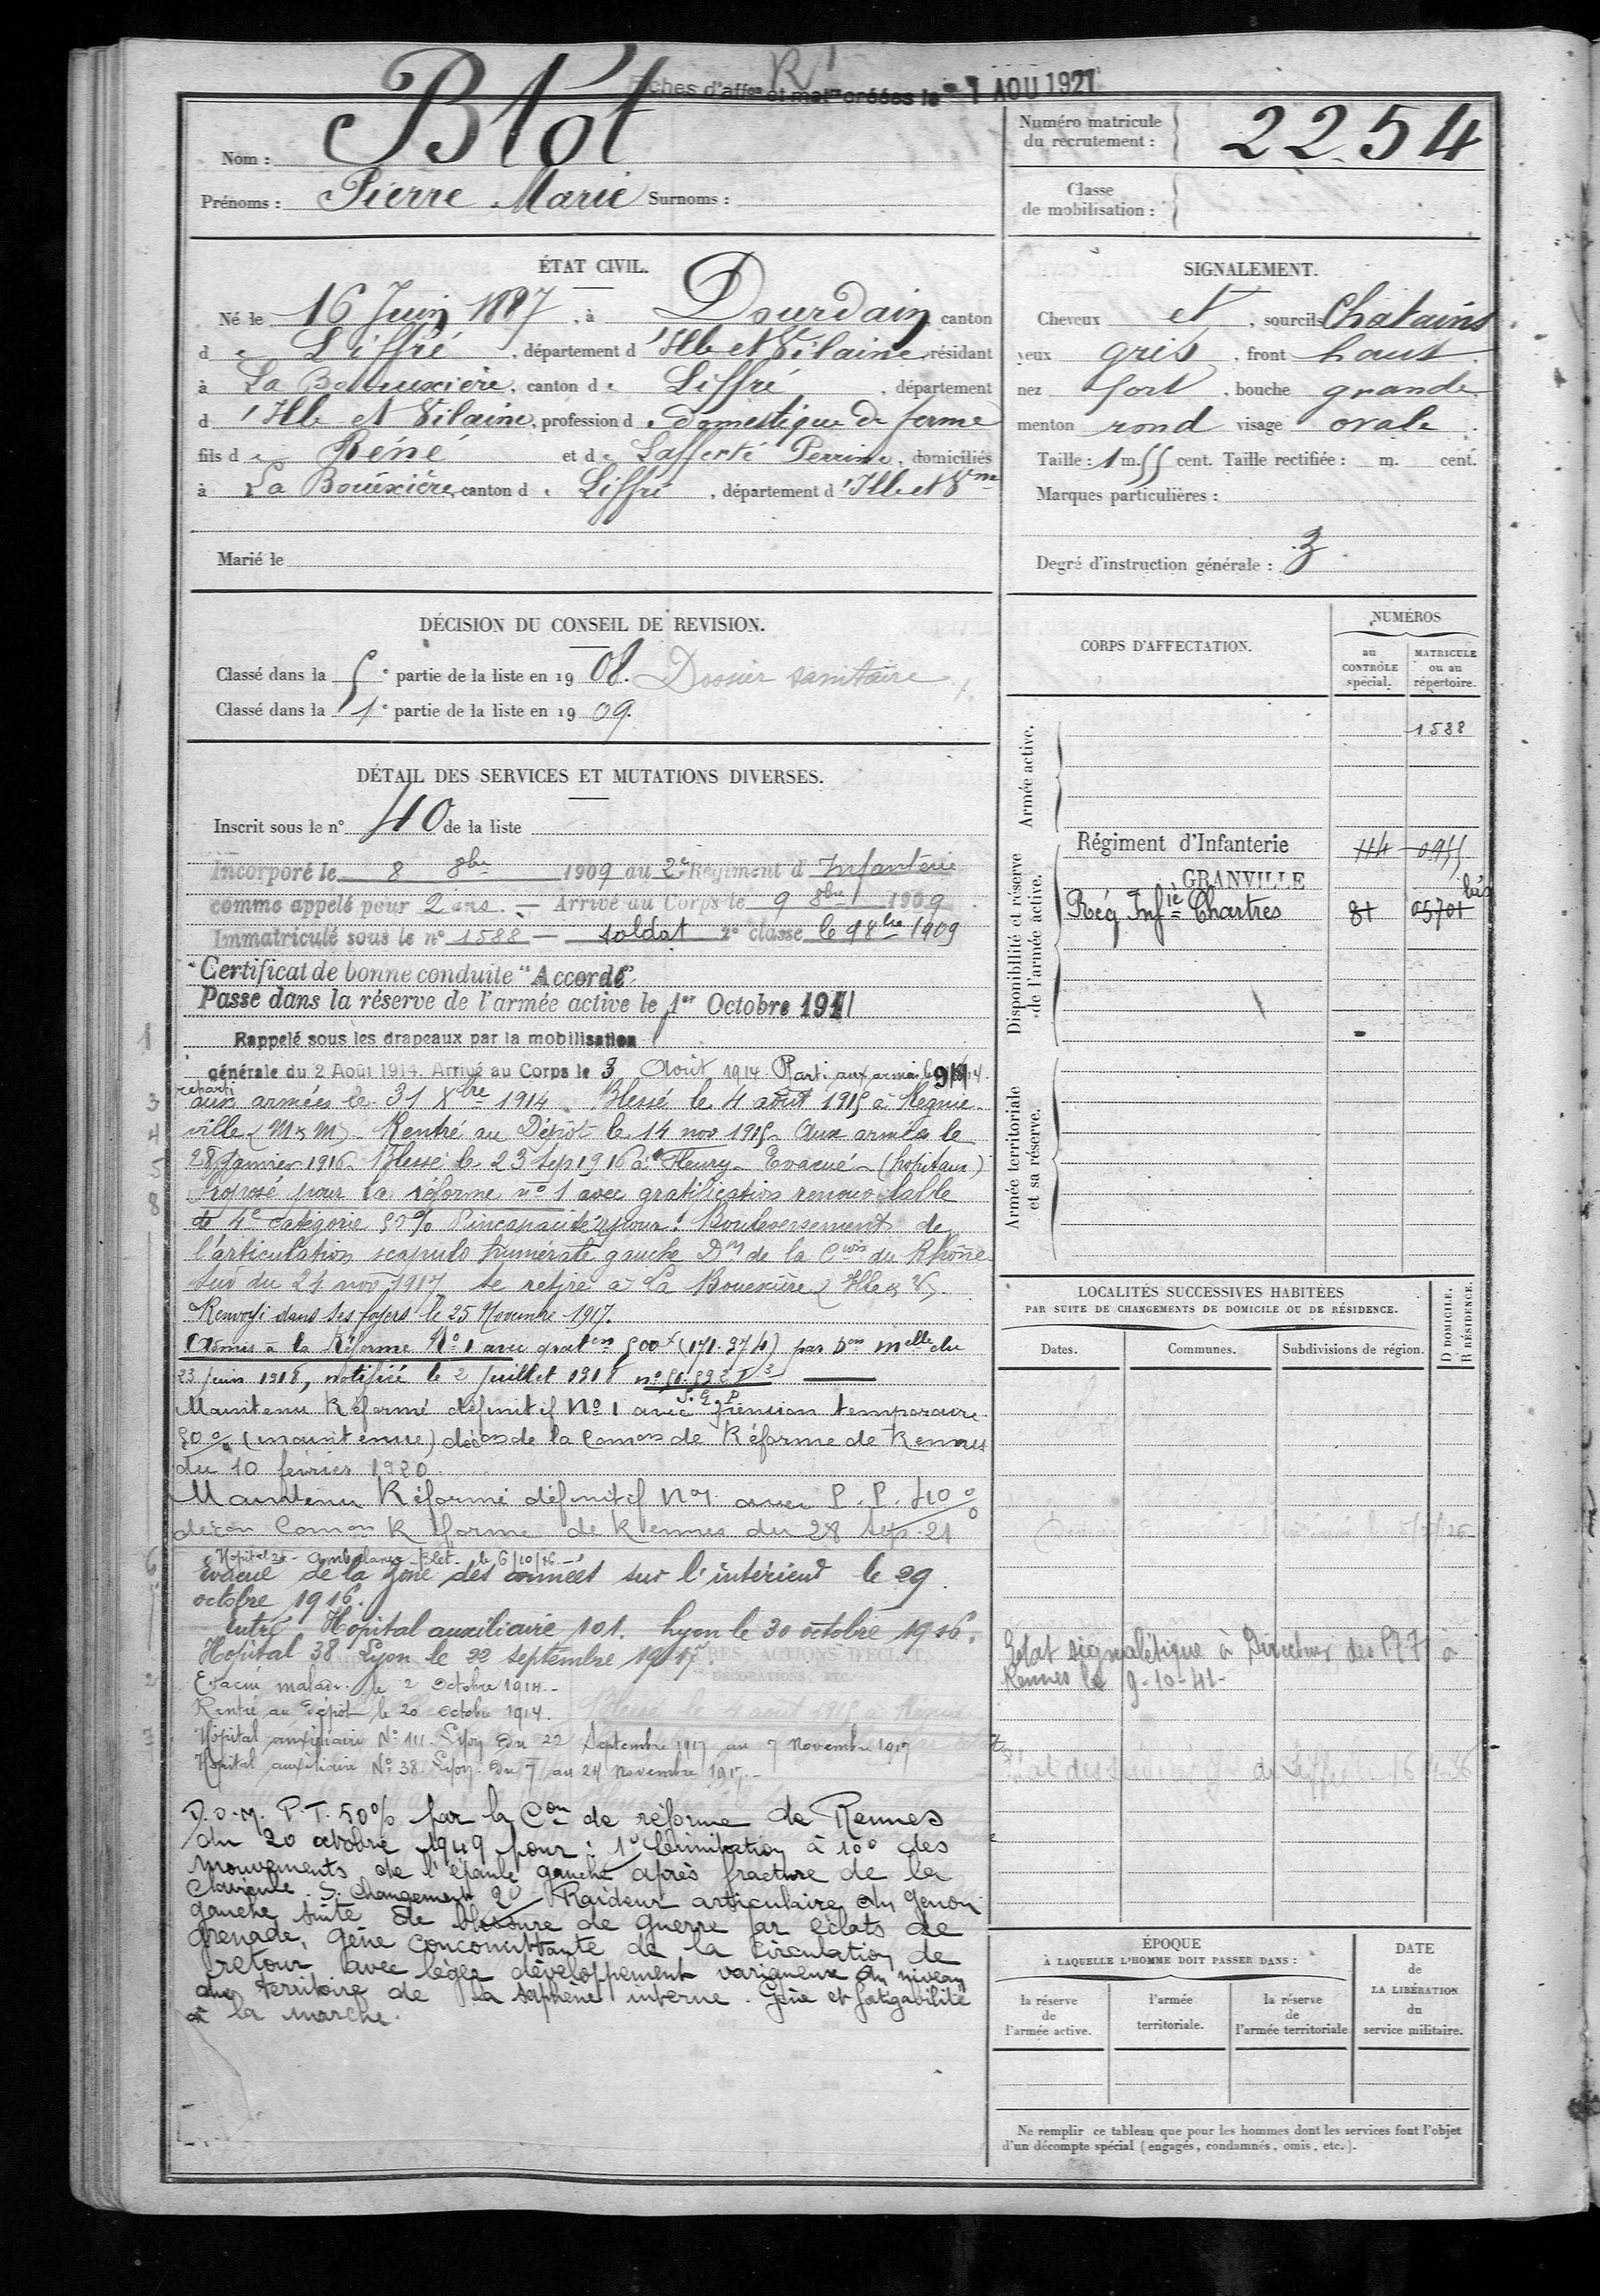 R
Fiches d'aff^on et mat^le créées le - 1 AOU 1927
Nom : Blot
Prénoms : Pierre Marie Surnoms :
Numéro matricule du recrutement : 2254
Classe de mobilisation :
ÉTAT CIVIL.
Né le 16 Juin 1887, à Dourdain, canton
de Liffré, département d'Ille et Vilaine, résidant
à La Bouexière, canton de Liffré, département
d'Ille et Vilaine, profession de domestique de ferme
fils de Réné et de Lafferté Perrine, domiciliés
à La Bouëxière, canton de Liffré, département d'Ille et V^ne
Marié le
SIGNALEMENT.
Cheveux et, sourcils Chatains
yeux gris, front haut
nez fort, bouche grande
menton rond visage ovale
Taille : 1 m. 55 cent. Taille rectifiée : m. cent.
Marques particulières :
Degré d'instruction générale : 3
DÉCISION DU CONSEIL DE REVISION.
Classé dans la 5e partie de la liste en 1908. Dossier sanitaire
Classé dans la 1e partie de la liste en 1909.
DÉTAIL DES SERVICES ET MUTATIONS DIVERSES.
Inscrit sous le n° 40 de la liste
Incorporé le 8 8bre 1909 au 2e Régiment d'Infanterie
comme appelé pour 2 ans. — Arrivé au Corps le 9 8bre 1909
Immatriculé sous le n° 1588 — soldat 2e classe le 9 8bre 1909
Certificat de bonne conduite "Accordé"
Passe dans la réserve de l'armée active le 1er Octobre 1911
Rappelé sous les drapeaux par la mobilisation
générale du 2 Août 1914. Arrivé au Corps le 3 Août 1914. Parti aux armées le 9 14.
reparti
aux armées le 31 Xbre 1914. Blessé le 4 août 1915 à Regnie-
ville (M & M) Rentré au Dépôt le 14 nov 1915 Aux armées le
28 Janvier 1916. Blessé le 23 Sep 1916 à Fleury. Evacué (hopitaux)
Proposé pour la réforme n° 1 avec gratification renouvelable
de 4e catégorie 50% d'incapacité pour : Bouleversement de
l'articulation scapulo humérale gauche D^on de la C^ion du Rhône
Sud du 21 nov 1917 se retire à La Bouexière (Ille & V).
Renvoyé dans ses foyers le 25 Novembre 1917.
Admis à la Réforme N° 1 avec grat^on 500f (171.274) par D^on M^elle du
23 juin 1918, notifiée le 2 juillet 1918
Maintenu Réformé définitif N° 1 avec pension temporaire
50% (maintenue) déc^on de la Com^on de Réforme de Rennes
du 10 fevrier 1920.
Maintenu Réformé définitif N°1 avec P.P. 40%
décon Comon Réforme de Rennes du 28 sep. 21
le 6/10/16
Evacué de la zone des armées sur l'intérieur le 29
octobre 1916.
Entré Hopital auxiliaire 101. Lyon le 30 octobre 1916.
Hopital 38 Lyon le 22 septembre 1917
Evacué malade le 2 Octobre 1914.
Rentré au Dépôt le 20 octobre 1914.
Hôpital auxiliaire N° 111 Lyon du 22 Septembre 1917 au 7 Novembre 1917
Hôpital auxiliaire N° 38 Lyon du 7 au 24 novembre 1917.
D.O.M. P.T. 50% par la C^on de réforme de Rennes
du 20 octobre 1949 pour : 1° limitation à 100 des
mouvements de l'épaule gauche après fracture de la
clavicule. S. Changement 2° Raideur articulaire du genou
gauche suite de blessure de guerre par éclats de
grenade, gène concomittante de la circulation de
retour avec léger développement variqueux au niveau
du territoire de la saphène interne. Gène et fatigabilité
à la marche.
CORPS D'AFFECTATION.
NUMÉROS
au CONTRÔLE spécial.
MATRICULE ou au répertoire.
Armée active.
1588
Disponibilité et réserve de l'armée active.
Régiment d'Infanterie 114 0955
GRANVILLE
Rég Inf^ie Chartres 81 05701 bis
Armée territoriale et sa réserve.
LOCALITÉS SUCCESSIVES HABITÉES
PAR SUITE DE CHANGEMENTS DE DOMICILE OU DE RÉSIDENCE.
Dates.
Communes.
Subdivisions de région.
D DOMICILE.
R RÉSIDENCE.
Etat signalétique à Directeur des à
Rennes le 9-10-41-
ÉPOQUE
À LAQUELLE L'HOMME DOIT PASSER DANS :
la réserve de l'armée active.
l'armée territoriale.
la réserve de l'armée territoriale
DATE de LA LIBÉRATION du service militaire.
Ne remplir ce tableau que pour les hommes dont les services font l'objet
d'un décompte spécial (engagés, condamnés, omis, etc.).